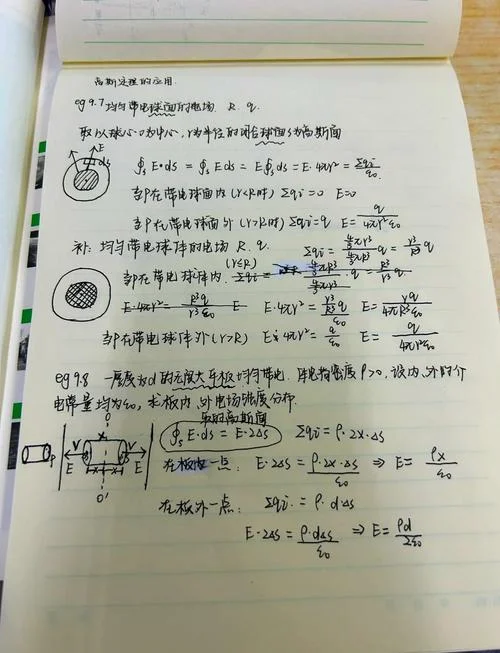 高斯定理的应用.
eg 9.7 均匀带电球面的电场. R. q.
取以球心O为中心, r为半径的闭合球面S为高斯面
∮s E·ds = ∮s E ds = E ∮ ds = E·4πr² = Σqi/ε0
ds E
当P在带电球面内(r<R时) Σqi=0 E=0
当P在带电球面外(r>R时) Σqi=q E= q/4πr²ε0
补: 均匀带电球体的电场 R. q.
Σqi = (4/3πr³)/(4/3πR³) q = r³/R³ q
当P在带电球体内. (r≤R) Σqi = (4/3πR³)/(4/3πr³) ·q = R³/r³ q
E·4πr² = R³q/r³ε0 E E·4πr² = r³/R³ q/ε0 E= rq/4πR³ε0
当P在带电球体外(r>R) E·4πr² = q/ε0 E= q/4πr²ε0
eg 9.8 一厚度为d的无限大平板均匀带电. 体电荷密度ρ>0, 设内、外的介
电常量均为ε0, 求板内、外电场强度分布.
的高斯面
∮s E·ds = E·2Δs Σqi = ρ·2x·Δs
在板内一点: E·2Δs = ρ·2x·Δs/ε0 ⇒ E= ρx/ε0
在板外一点: Σqi = ρ·dΔs
E·2Δs = ρ·dΔs/ε0 ⇒ E= ρd/2ε0
O
ρ E E
x x
O'